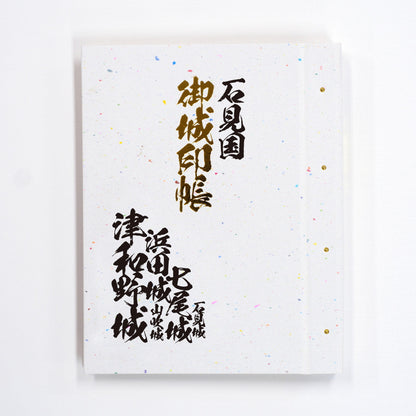 石見国
御城印帳
石見城
七尾城
山吹城
浜田城
津和野城